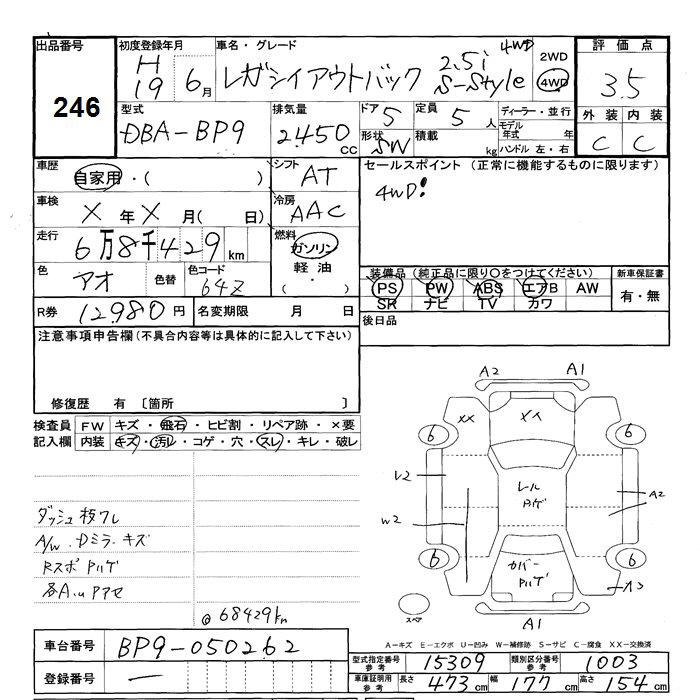 出品番号
246
初度登録年月
H19 6月
車名・グレード
レガシイアウトバック 2.5i S-Style 4WD
2WD
4WD
評価点
3.5
外装 内装
C C
型式
DBA-BP9
排気量
2450 cc
ドア 5
形状 SW
定員 5 人
積載 kg
ディーラー・並行
モデル年式 年
ハンドル 左・右
車歴
自家用・( )
シフト AT
セールスポイント (正常に機能するものに限ります)
4WD!
車検
X 年 X 月( 日)
冷房 AAC
走行
6万8千429 km
燃料
ガソリン
軽油
( ・ )
色 アオ
色替
色コード 64Z
装備品 (純正品に限り○をつけてください)
PS PW ABS エアB AW
SR ナビ TV カワ
新車保証書
有・無
R券 12,980 円
名変期限 月 日
後日品
注意事項申告欄 (不具合内容等は具体的に記入して下さい)
修復歴 有 〔箇所 〕
検査員記入欄
FW キズ・飛石・ヒビ割・リペア跡・×要
内装 キズ・汚レ・コゲ・穴・スレ・キレ・破レ
A2 A1
XX XX
6 6
V2
W2
レール
ハゲ
A2
6 6
カバー
ハゲ
A3
スペア
A1
A/W .Dミラーキズ
@68429km
A-キズ E-エクボ U-凹み W-補修跡 S-サビ C-腐食 XX-交換済
車台番号 BP9-050262
登録番号 —
型式指定番号 参考 15309
類別区分番号 参考 1003
車庫証明用 参考 長さ 473 cm 幅 177 cm 高さ 154 cm